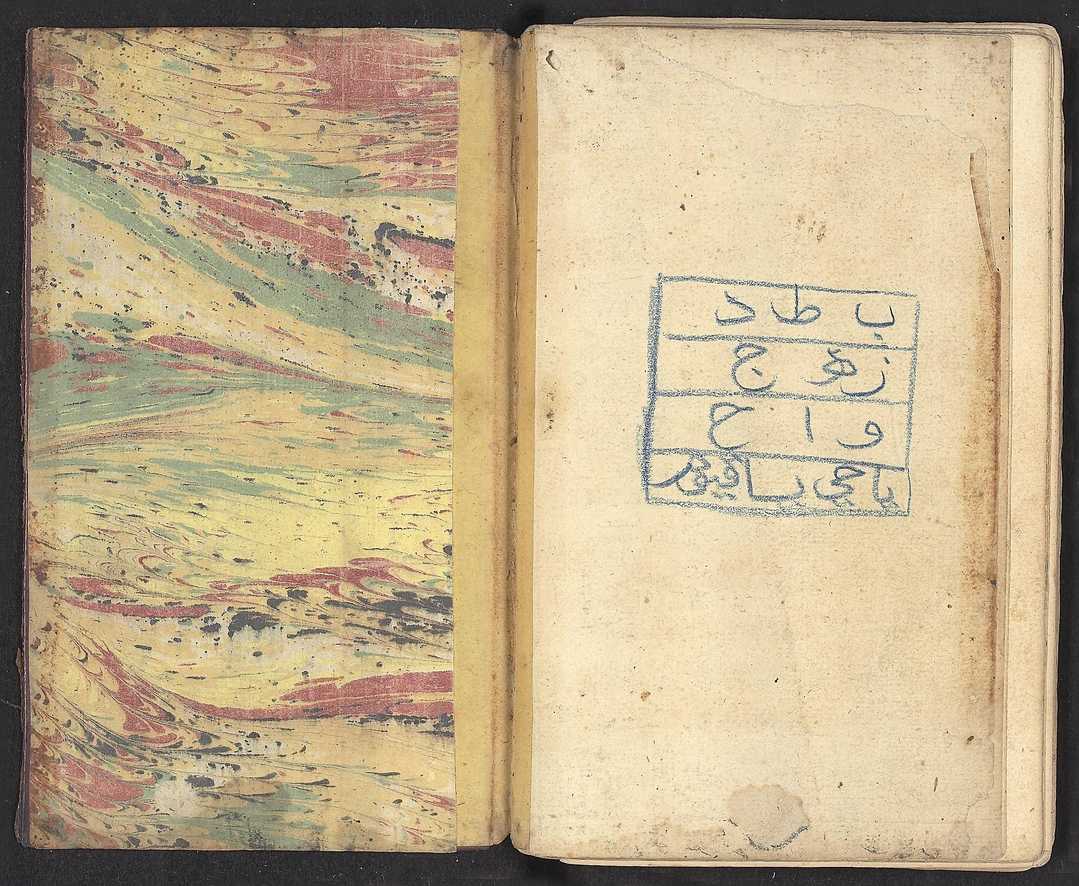 ب ط د
ز ه ج
و ا ح
يا حي يا قيوم